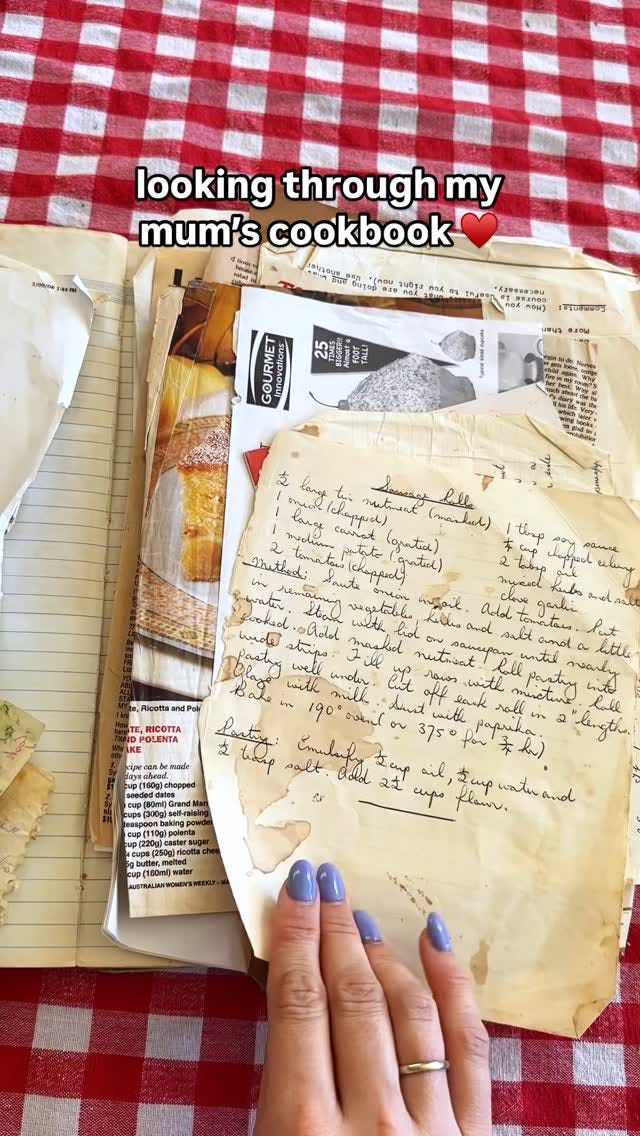 looking through my
mum's cookbook ❤️
3/09/08 1:44 PM
necessary.
course is useful to you right now). Use another
Comments: (How
More than
GOURMET
Innovations
25
TIMES
BIGGER!!
Almost a
FOOT
TALL!
Typical sized cupcake
Sausage Rolls
½ large tin nutmeat (mashed)
1 onion (chopped)
1 large carrot (grated)
1 medium potato (grated)
2 tomatoes (chopped)
1 tbsp soy sauce
¼ cup chopped celery
2 tabsp oil
mixed herbs and salt
clove garlic
Method: Saute onion in oil. Add tomatoes. Put
in remaining vegetables, herbs and salt and a little
water. Steam with lid on saucepan until nearly
cooked. Add mashed nutmeat. Roll pastry into
wide strips. Fill up rows with mixture, roll
pastry well under. Cut off each roll in 2" lengths.
Glaze with milk. Dust with paprika.
Bake in 190° oven (or 375° for ¾ hr)
Pastry: Emulsify ½ cup oil, ½ cup water and
½ teasp salt. Add 2½ cups flour.
te, Ricotta and Pol
TE, RICOTTA
ND POLENTA
AKE
ecipe can be made
days ahead.
cup (160g) chopped
seeded dates
cup (80ml) Grand Mar
cups (300g) self-raising
teaspoon baking powde
cup (110g) polenta
cup (220g) caster sugar
4 cups (250g) ricotta chee
5g butter, melted
cup (180ml) water
AUSTRALIAN WOMEN'S WEEKLY – MA